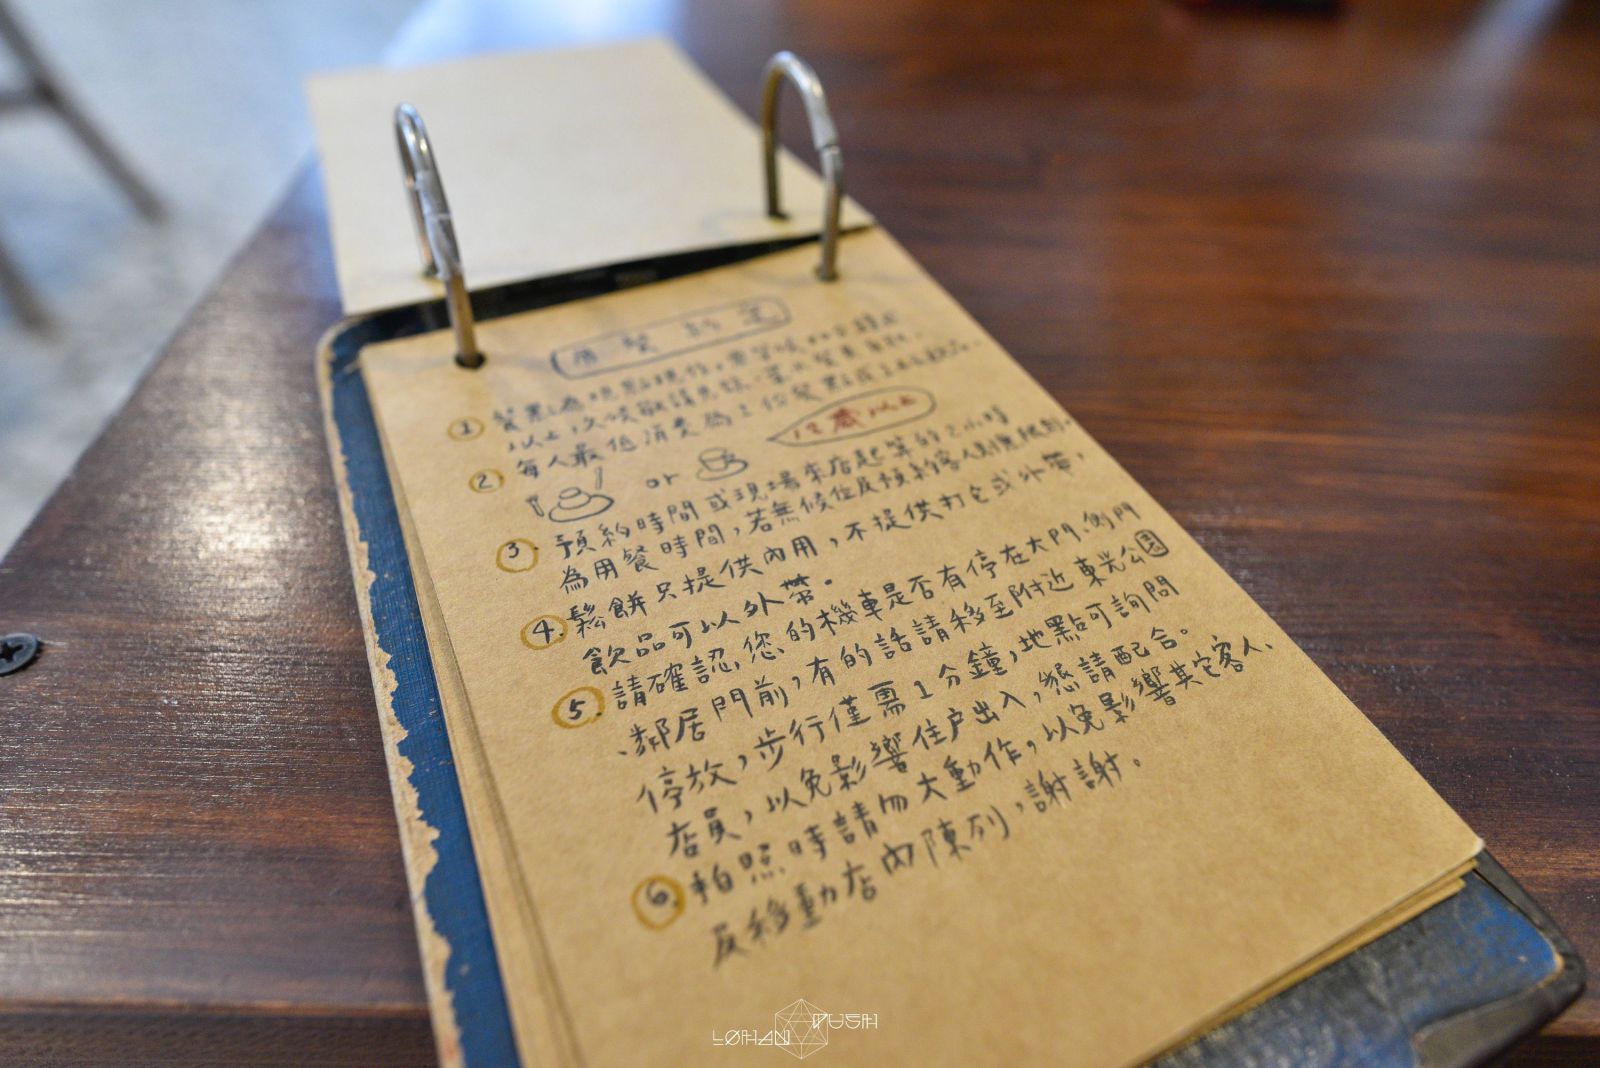 用餐約定
① 餐點為現點現作,需等候
以上,久候敬請見諒。
② 每人最低消費為1份餐點或
12歲以上
or
3. 預約時間或現場來店起算的2小時
為用餐時間,若無候位及預約客人則無限制。
4. 鬆餅只提供內用,不提供打包或外帶,
飲品可以外帶。
5. 請確認您的機車是否有停在大門、側門
、鄰居門前,有的話請移至附近東光公園
停放,步行僅需1分鐘,地點可詢問
店員,以免影響住戶出入,懇請配合。
6. 拍照時請勿大動作,以免影響其它客人、
及移動店內陳列,謝謝。
LØHAN PUSH